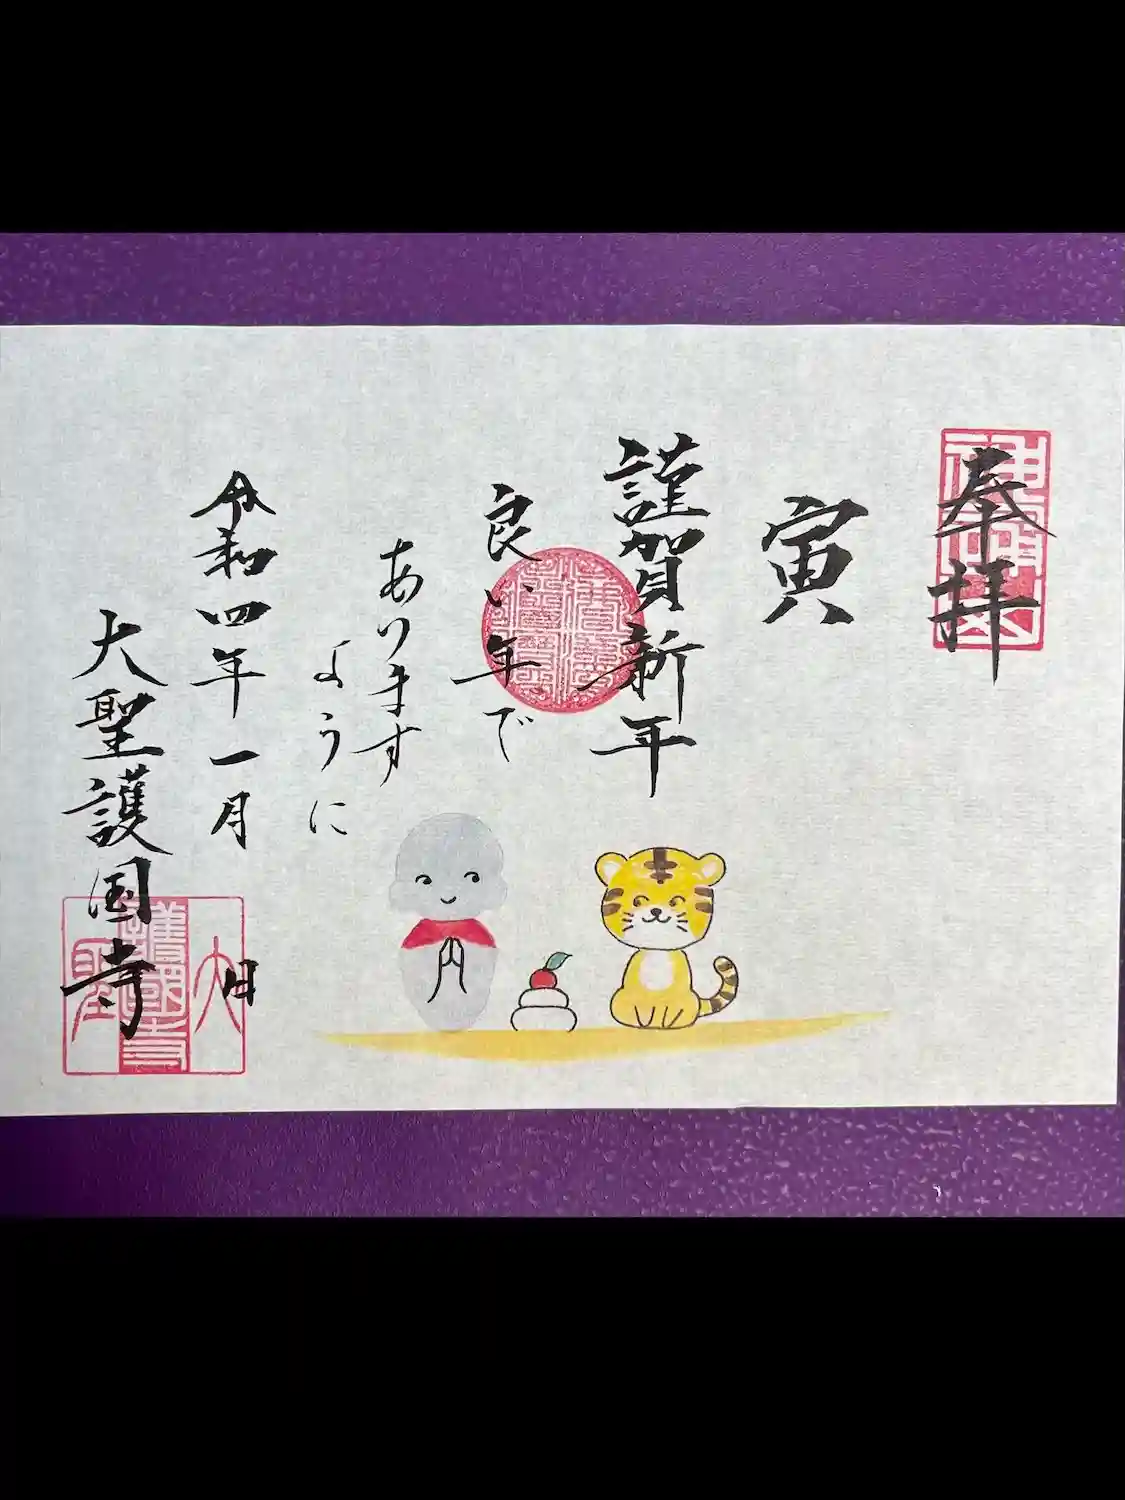 奉拝
寅
謹賀新年
良い年で
あります
ように
令和四年一月 日
大聖護国寺
大
護國寺
聖